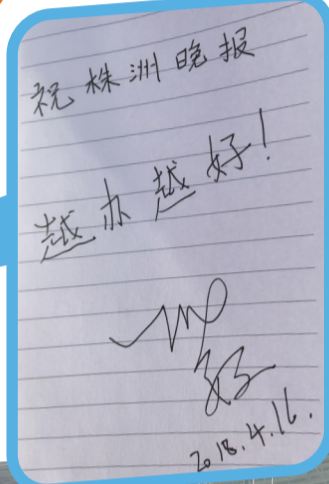 祝株洲晚报
越办越好！
2018.4.16.